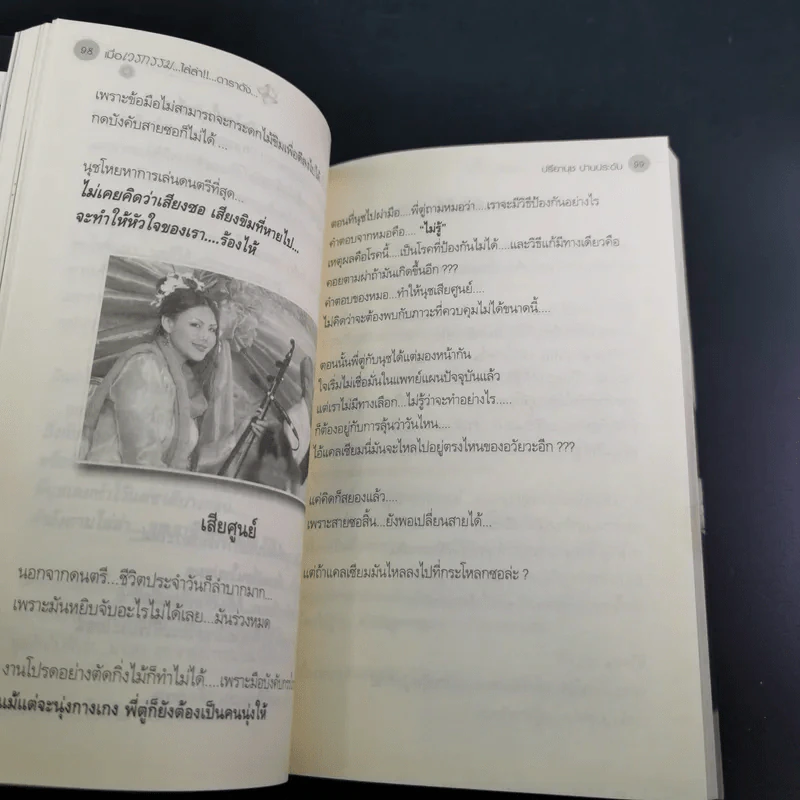 98 เมื่อเวรกรรม...ไล่ล่า!!...ดาราดัง...
เพราะข้อมือไม่สามารถจะกระดกไม้ขิมเพื่อตีลงไปได้
กดบังคับสายซอก็ไม่ได้ ...
นุชโหยหาการเล่นดนตรีที่สุด...
ไม่เคยคิดว่าเสียงซอ เสียงขิมที่หายไป...
จะทำให้หัวใจของเรา....ร้องไห้
เสียศูนย์
นอกจากดนตรี...ชีวิตประจำวันก็ลำบากมาก...
เพราะมันหยิบจับอะไรไม่ได้เลย...มันร่วงหมด
งานโปรดอย่างตัดกิ่งไม้ก็ทำไม่ได้....เพราะมือบังคับ
แม้แต่จะนุ่งกางเกง พี่ตู่ก็ยังต้องเป็นคนนุ่งให้
ปรียานุช ปานประดับ 99
ตอนที่นุชไปผ่ามือ....พี่ตู่ถามหมอว่า....เราจะมีวิธีป้องกันอย่างไร
คำตอบจากหมอคือ.... "ไม่รู้"
เหตุผลคือโรคนี้....เป็นโรคที่ป้องกันไม่ได้....และวิธีแก้มีทางเดียวคือ
คอยตามผ่าถ้ามันเกิดขึ้นอีก ???
คำตอบของหมอ...ทำให้นุชเสียศูนย์....
ไม่คิดว่าจะต้องพบกับภาวะที่ควบคุมไม่ได้ขนาดนี้....
ตอนนั้นพี่ตู่กับนุชได้แต่มองหน้ากัน
ใจเริ่มไม่เชื่อมั่นในแพทย์แผนปัจจุบันแล้ว
แต่เราไม่มีทางเลือก...ไม่รู้ว่าจะทำอย่างไร.....
ก็ต้องอยู่กับการลุ้นว่าวันไหน....
ไอ้แคลเซียมนี่มันจะไหลไปอยู่ตรงไหนของอวัยวะอีก ???
แค่คิดก็สยองแล้ว....
เพราะสายซอสิ้น...ยังพอเปลี่ยนสายได้...
แต่ถ้าแคลเซียมมันไหลลงไปที่กระโหลกซอล่ะ ?